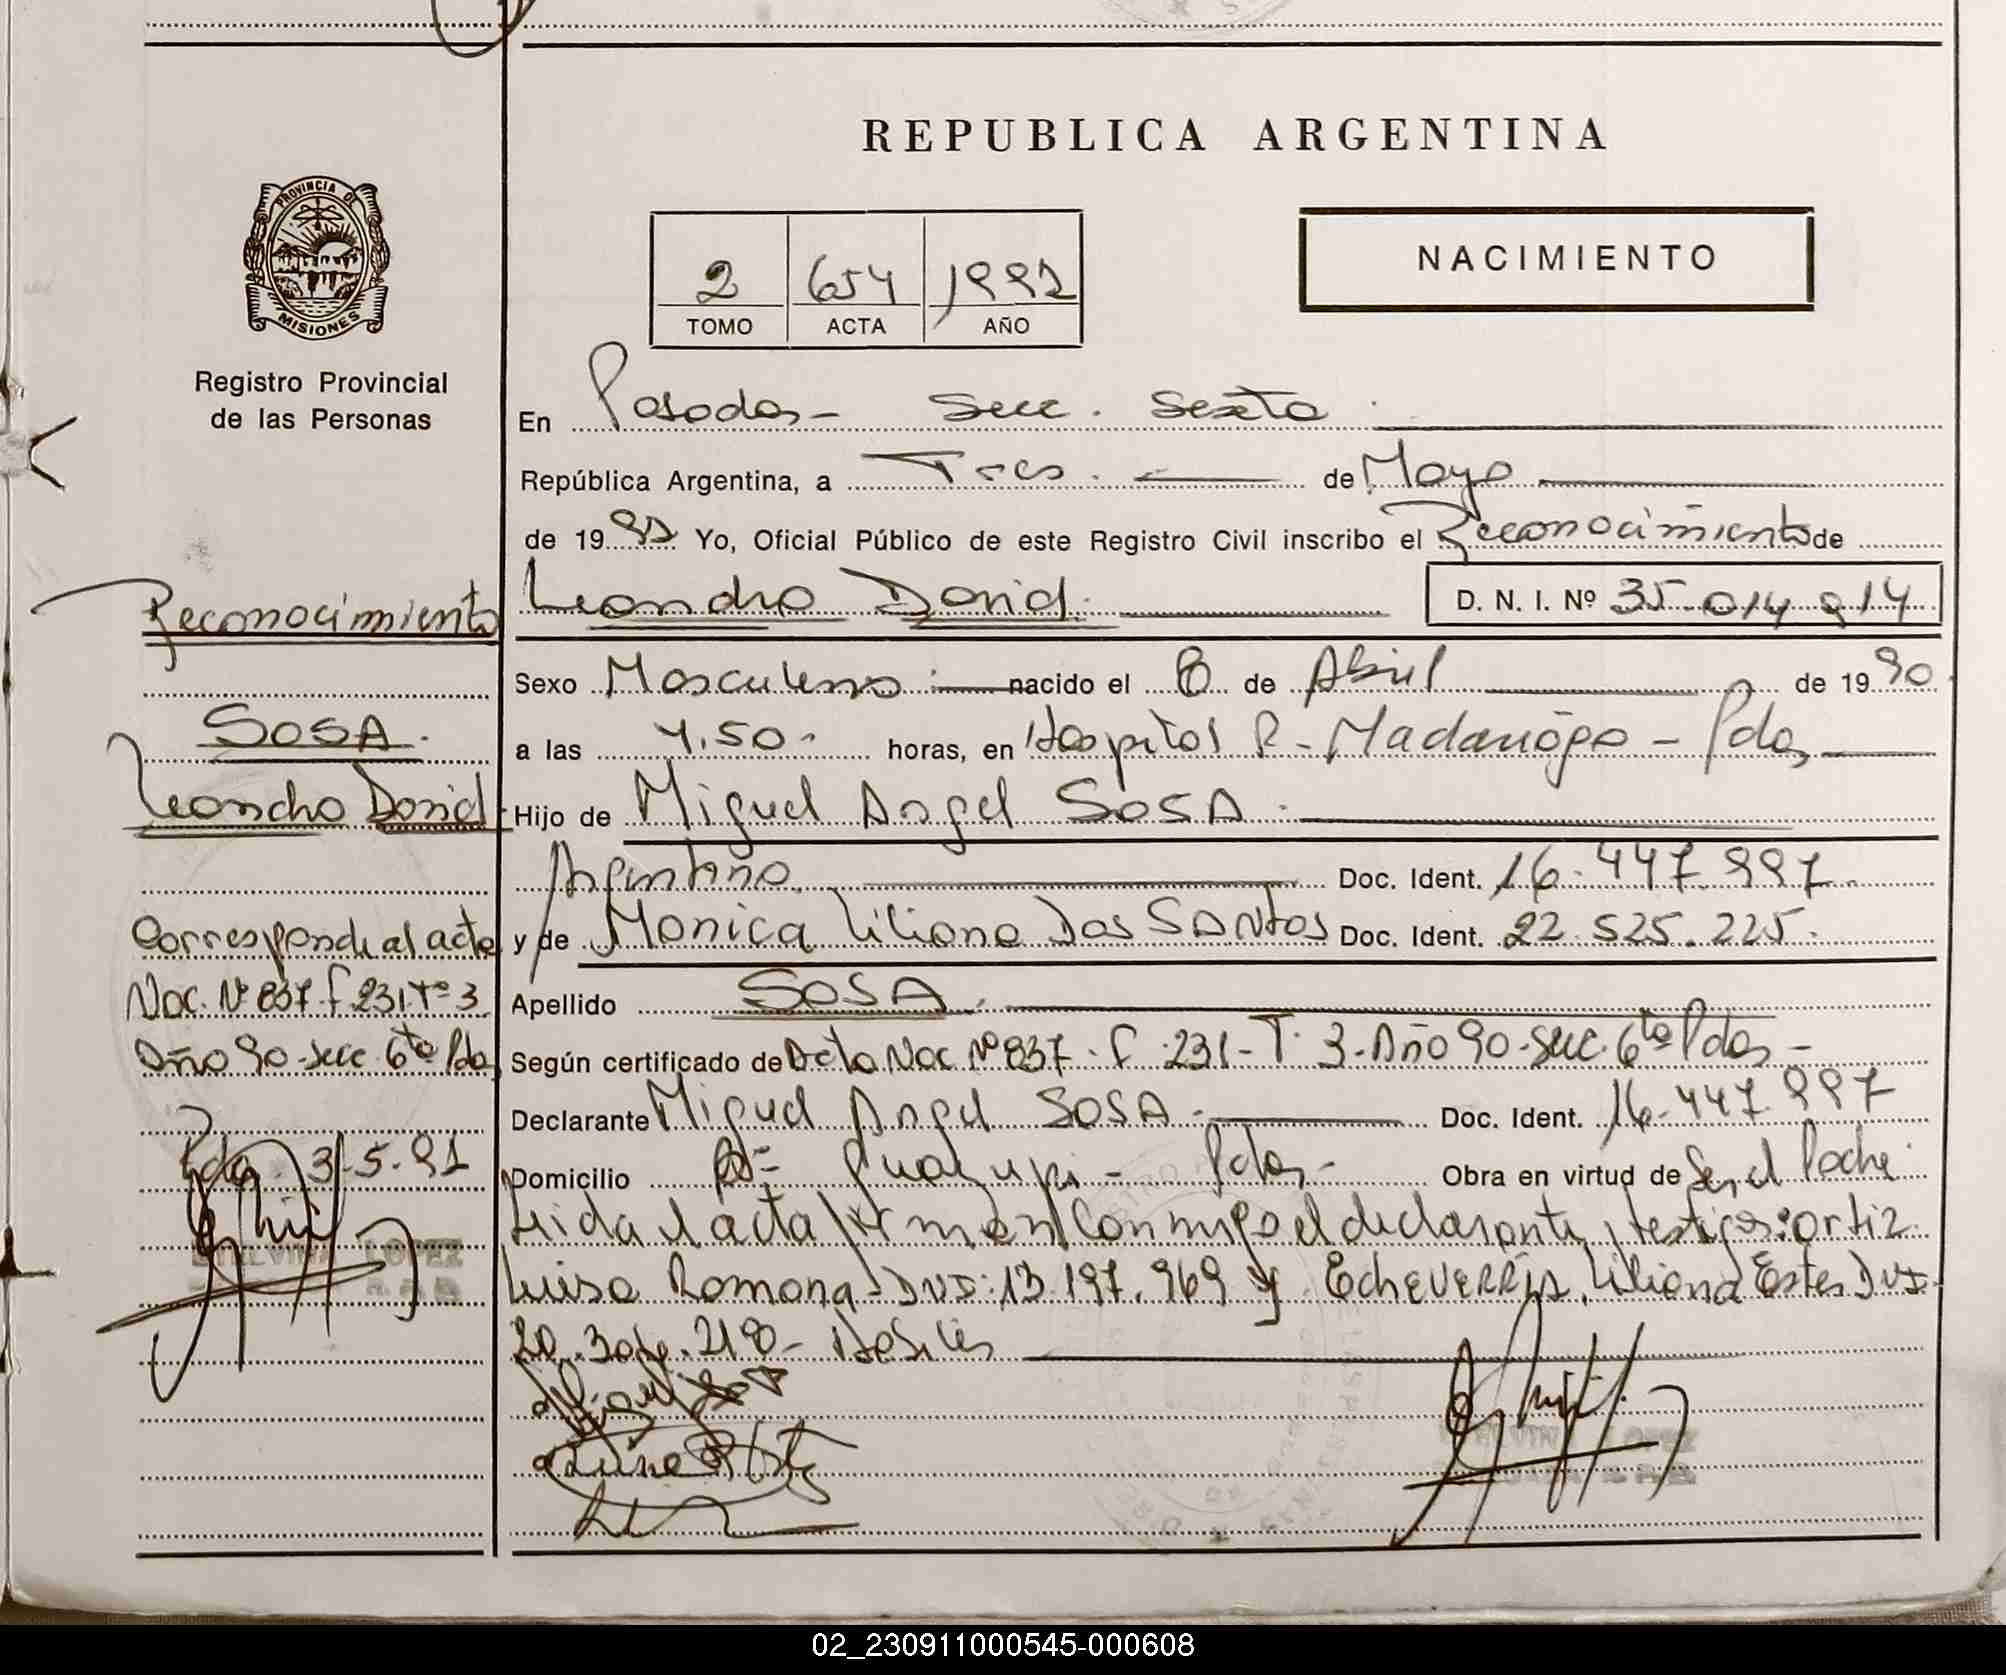 REPUBLICA ARGENTINA
NACIMIENTO
2 654 1991
TOMO ACTA AÑO
PROVINCIA DE
MISIONES
Registro Provincial
de las Personas
En Posadas - Secc. Sexta
República Argentina, a Tres de Mayo
de 1991 Yo, Oficial Público de este Registro Civil inscribo el Reconocimiento de
Leandro David. D. N. I. Nº 35.014.914
Sexo Masculino nacido el 8 de Abril de 1990
a las 4.50 horas, en Hospital R. Madariaga - Pdas
Hijo de Miguel Angel SOSA
Argentino Doc. Ident. 16.447.997
y de Monica Liliana Dos SANtos Doc. Ident. 22.525.225.
Apellido SOSA
Según certificado de Acta Nac Nº 837. f. 231 - T. 3 - Año 90 - Secc. 6ta Pdas -
Declarante Miguel Angel SOSA Doc. Ident. 16.447.997
Domicilio Bº Pdas - Obra en virtud de Ser el Padre
Leida el acta firman conmigo el declarante, testigos: Ortiz
Luisa Romona - DNI: 13.197.969 y EcheVERRIA, Liliana Ester DNI
20. 218 - Habiles
Reconocimiento
SOSA.
Leandro David
Corresponde al acta
Nac. Nº 837 f 231 Tº 3
Año 90 - Secc 6ta Pdas
Pdas 3-5-91
02_230911000545-000608